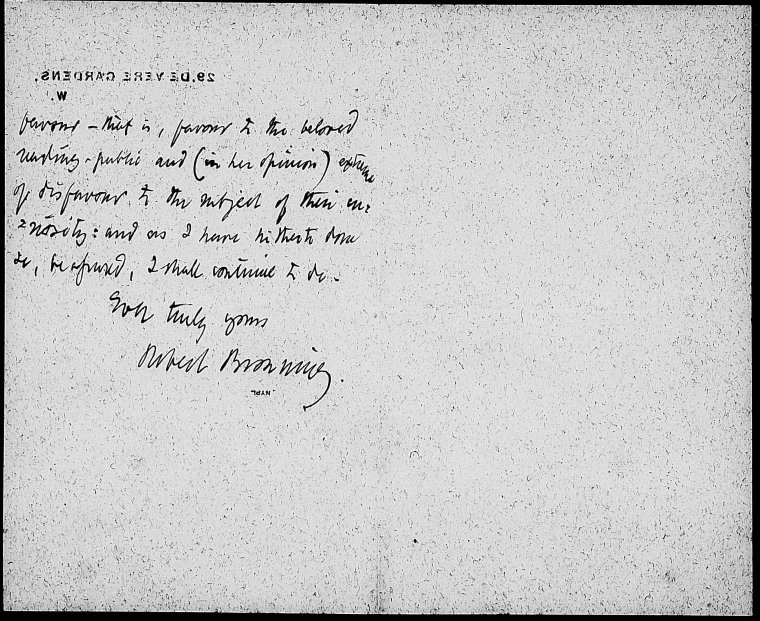 29. DE VERE GARDENS,
W.
favour - that is, favour to the beloved
reading-public and (in her opinion) extreme
of disfavour to the subject of their cu=
=riosity: and as I have hitherto done
so, be assured, I shall continue to do.
Ever truly yours
Robert Browning.
NYPL